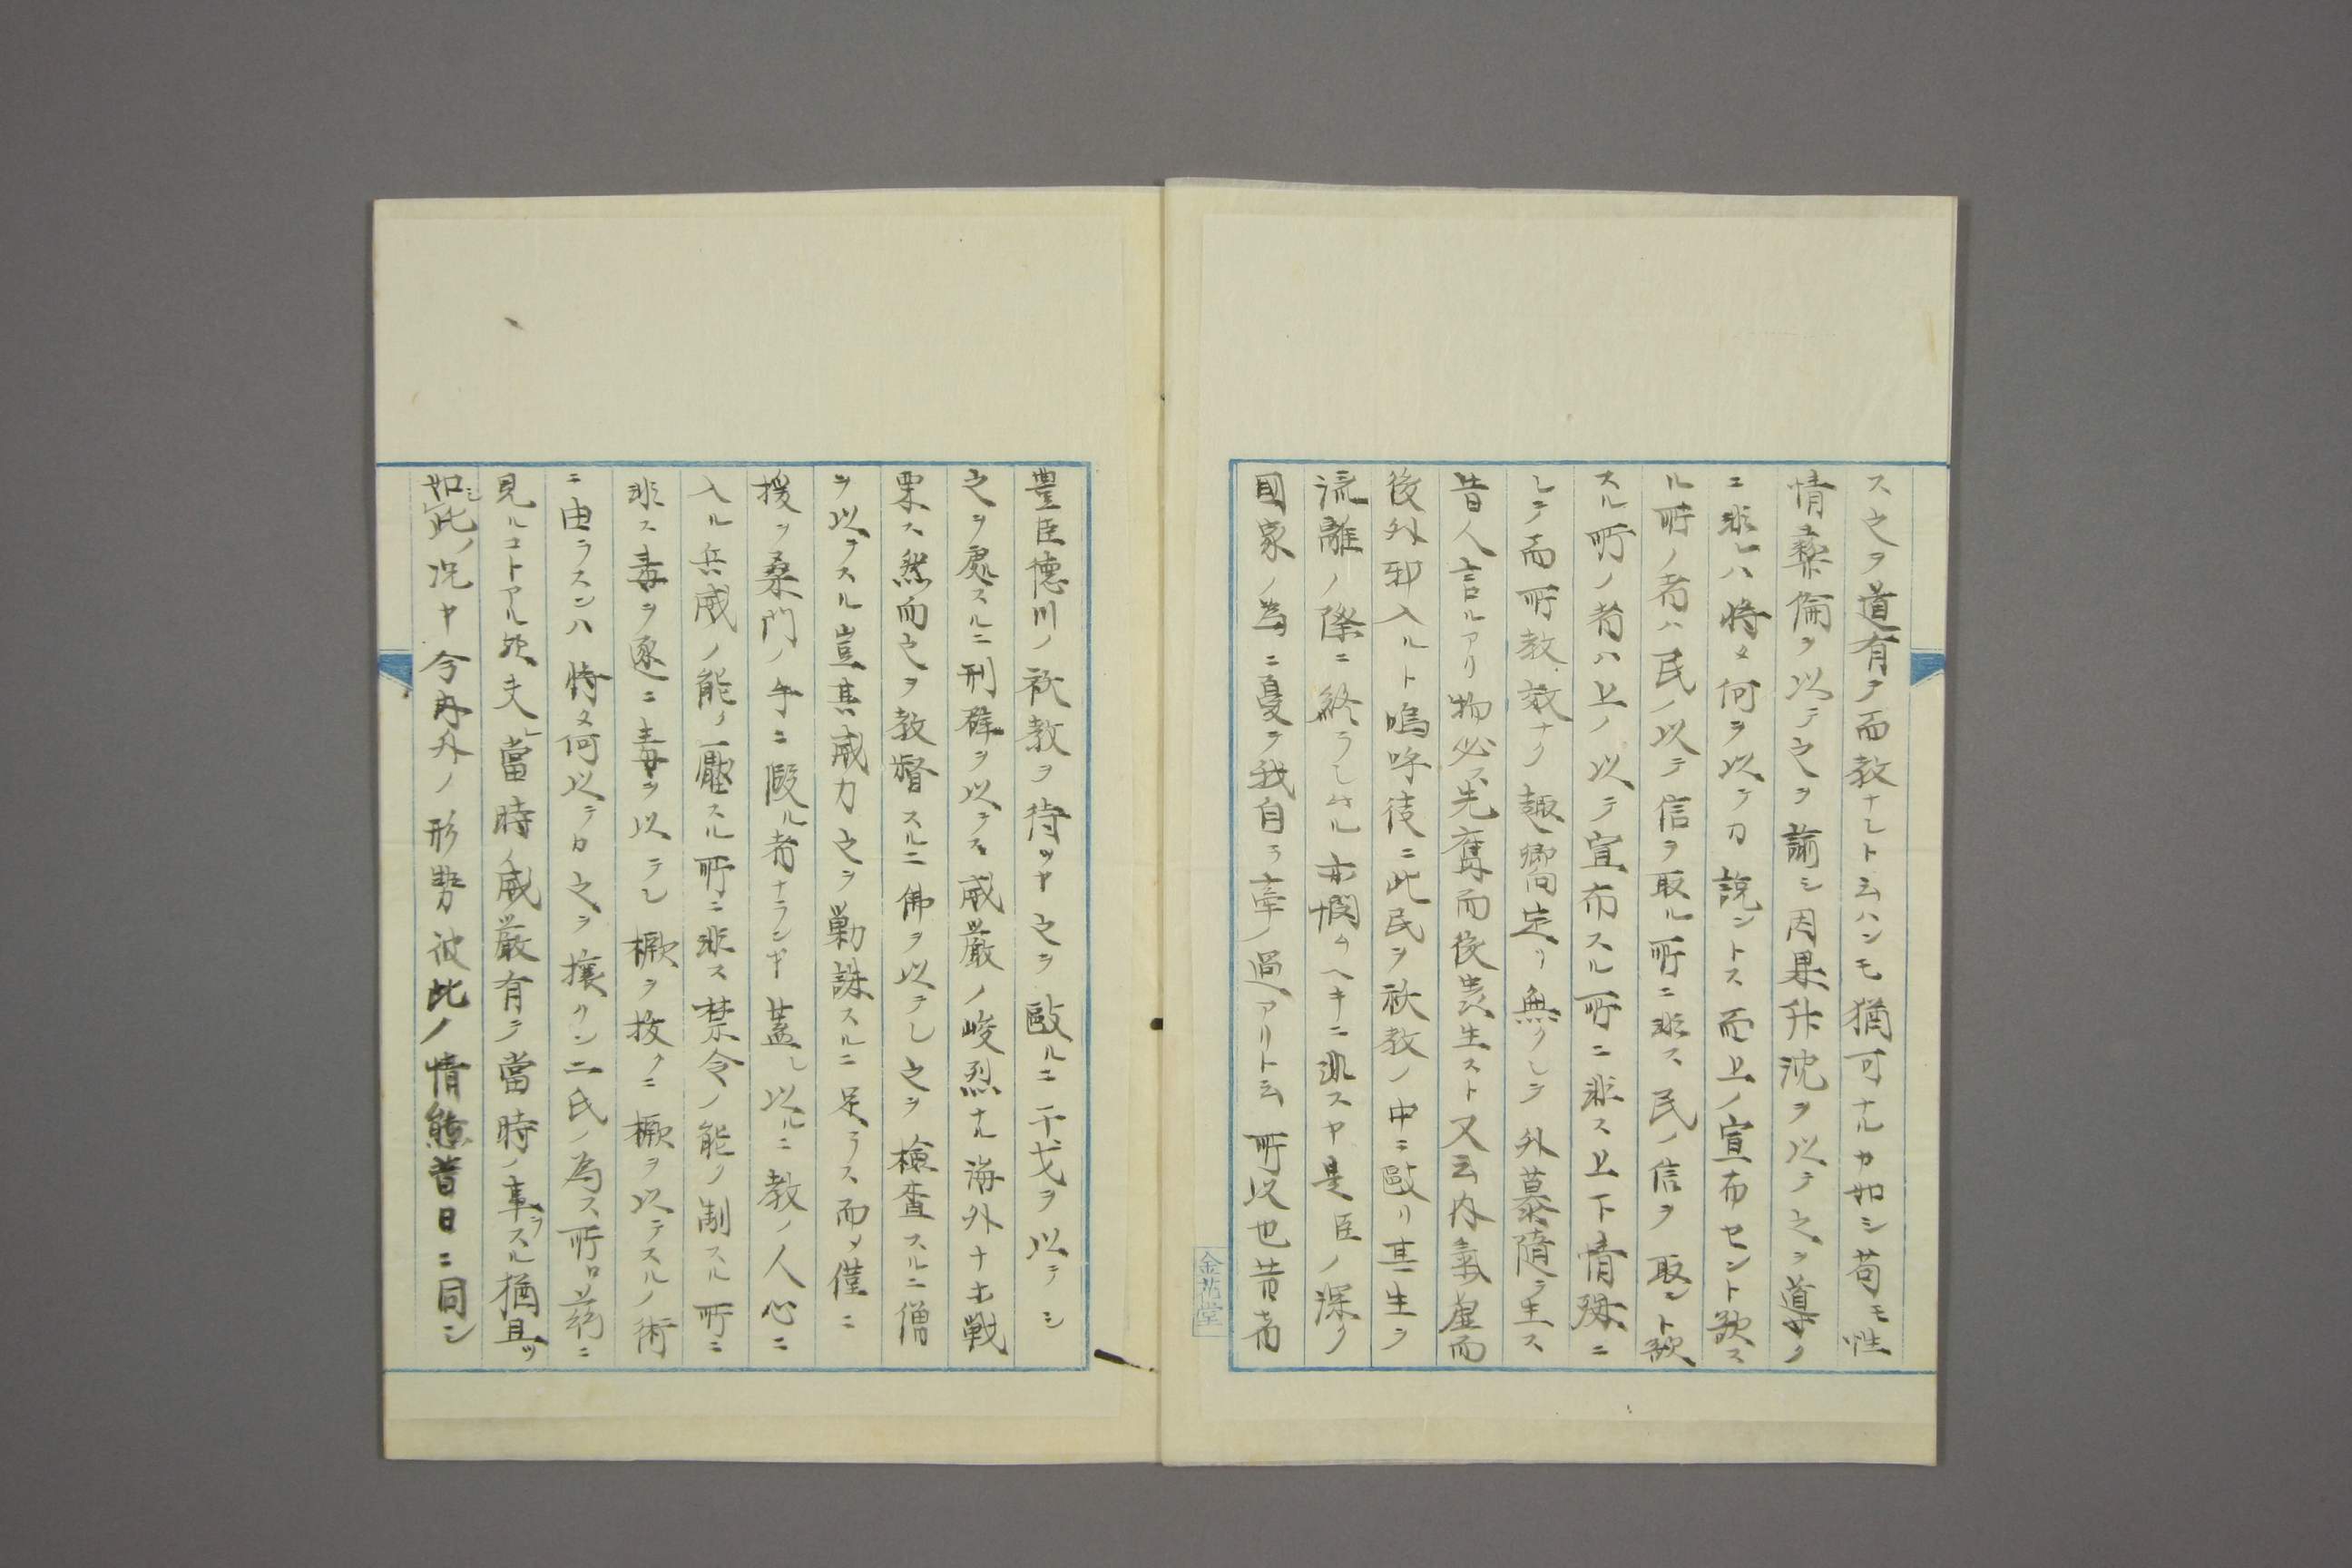 ス之ヲ道有テ而教ナシト云ハンモ猶可ナルカ如シ苟モ性
情彝倫ヲ以テ之ヲ諭シ因果升沈ヲ以テ之ヲ導ク
ニ非レハ将タ何ヲ以テカ説ントス而上ノ宣布セント欲ス
ル所ノ者ハ民ノ以テ信ヲ取ル所ニ非ス民ノ信ヲ取ント欲
スル所ノ者ハ上ノ以テ宣布スル所ニ非ス上下情殊ニ
シテ而所教教ナク趣嚮定リ無クシテ外慕隨テ生ス
昔人言ルアリ物必ス先腐而後虫生スト又云内氣虚而
後外邪入ルト嗚呼徒ニ此民ヲ祅教ノ中ニ敺リ其生ヲ
流離ノ際ニ終ラシムル亦憫ムヘキニ非スヤ是臣ノ深ク
国家ノ為ニ憂テ我自ラ牽ノ過アリト云所以也昔者
金花堂
豊臣徳川ノ祅教ヲ待ツヤ之ヲ敺ルニ干戈ヲ以テシ
之ヲ處スルニ刑辟ヲ以テス威嚴ノ峻烈ナル海外ナホ戦
栗ス然而之ヲ教督スルニ佛ヲ以テシ之ヲ檢査スルニ僧
ヲ以テスル豈其威力之ヲ勦誅スルニ足ラス而メ僅ニ
援ヲ桑門ノ手ニ假ル者ナランヤ蓋シ以ルニ教ノ人心ニ
入ル兵威ノ能ク壓スル所ニ非ス禁令ノ能ク制スル所ニ
非ス毒ヲ逐ニ毒ヲ以テシ橛ヲ抜クニ橛ヲ以テスルノ術
ニ由ラスンハ将タ何以テカ之ヲ攘ケン二氏ノ為ス所ロノ茲ニ
見ルコトアル歟夫レ當時ノ威嚴有テ當時ノ事ヲスル猶且ツ
如シ此ノ況ヤ今内外ノ形勢彼此ノ情態昔日ニ同シ